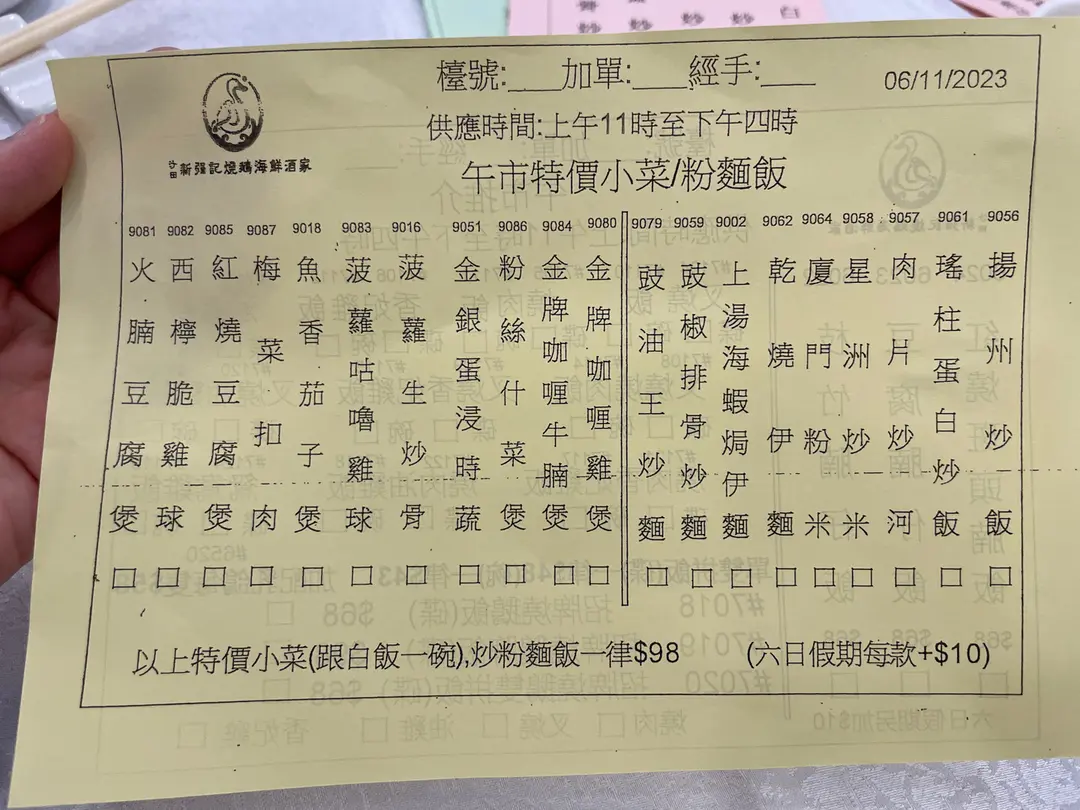 檯號:___加單:___經手:___
06/11/2023
新強記燒鵝海鮮酒家
供應時間:上午11時至下午四時
午市特價小菜/粉麵飯
9056 揚州炒飯
9061 瑤柱蛋白炒飯
9057 肉片炒河
9058 星洲炒米
9064 廈門炒米
9062 乾燒伊麵
9002 上湯海蝦焗伊麵
9059 豉椒排骨炒麵
9079 豉油王炒麵
9080 金牌咖喱雞煲
9084 金牌咖喱牛腩煲
9086 粉絲什菜煲
9051 金銀蛋浸時蔬
9016 菠蘿生炒骨
9083 菠蘿咕嚕雞球
9018 魚香茄子煲
9087 梅菜扣肉
9085 紅燒豆腐煲
9082 西檸脆雞球
9081 火腩豆腐煲
以上特價小菜(跟白飯一碗),炒粉麵飯一律$98
(六日假期每款+$10)